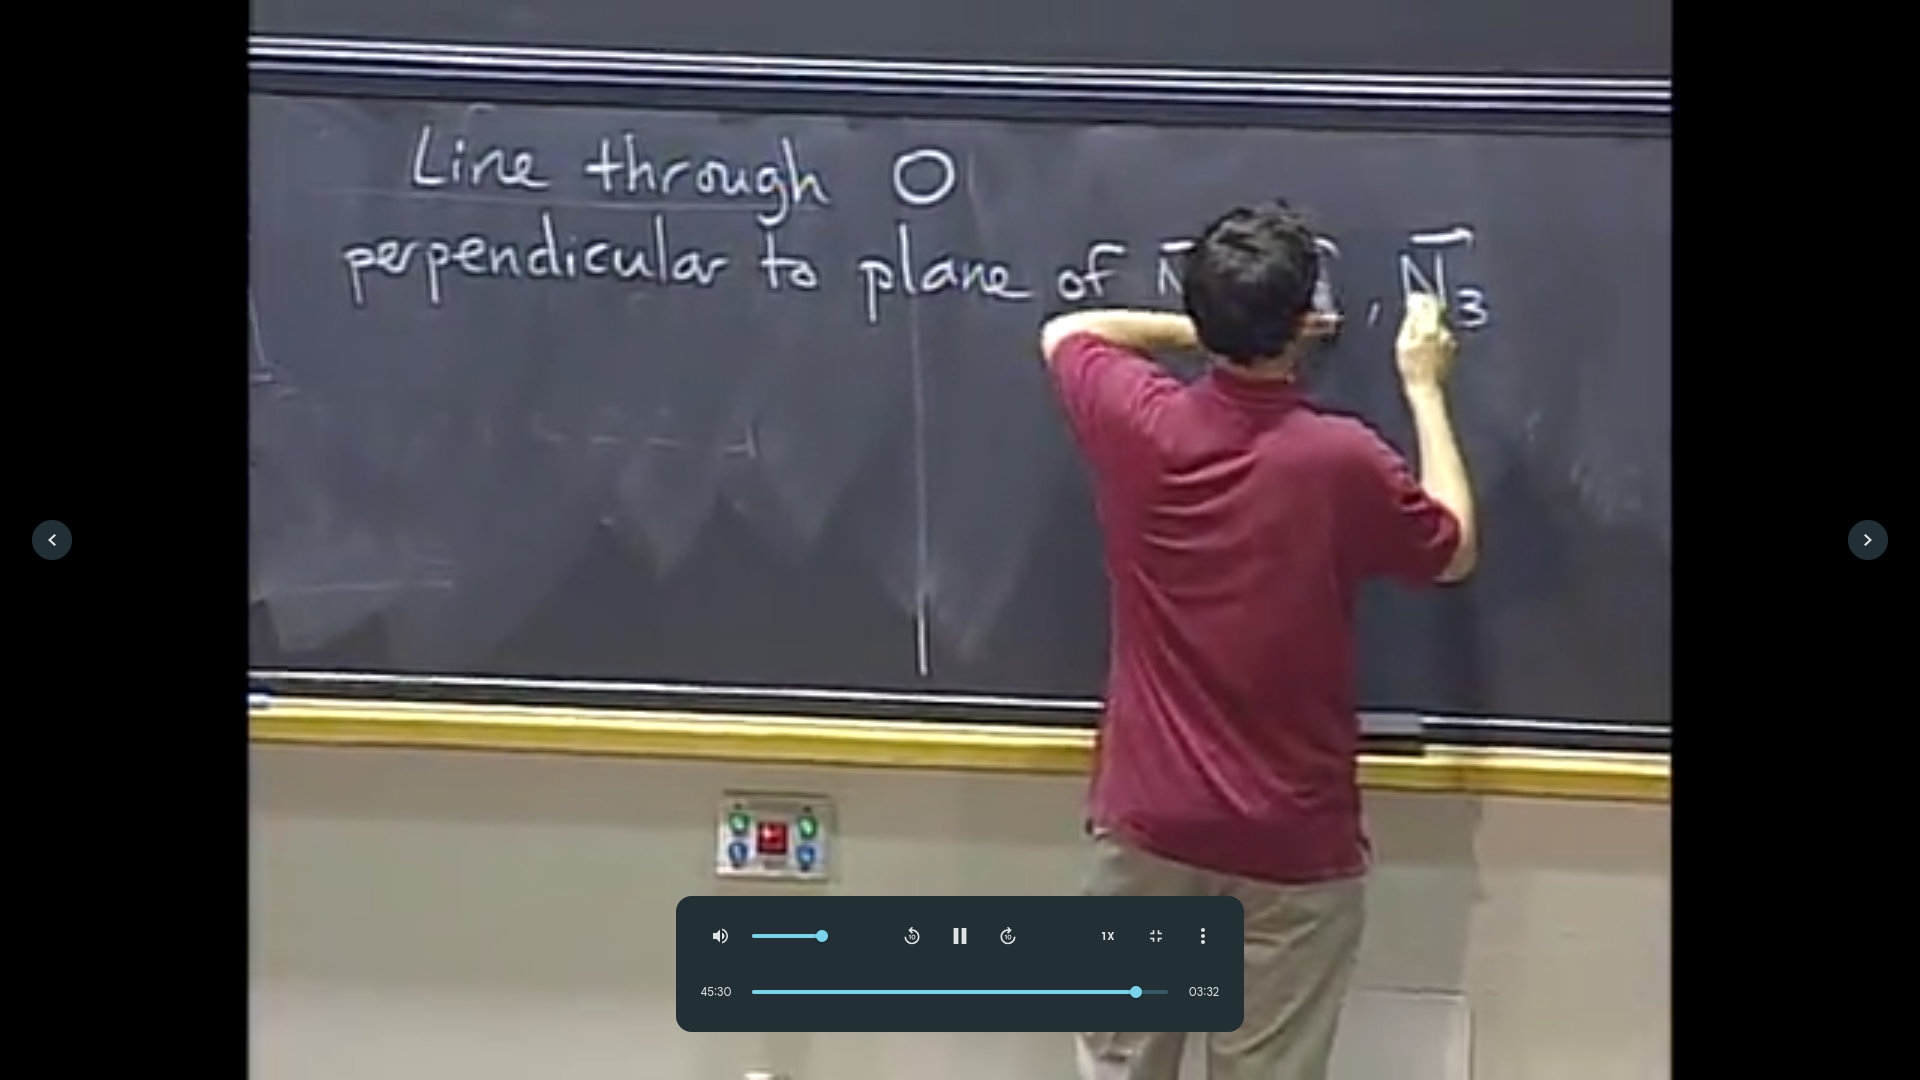 Line through O
perpendicular to plane of N , N₃
1X
45:30 03:32